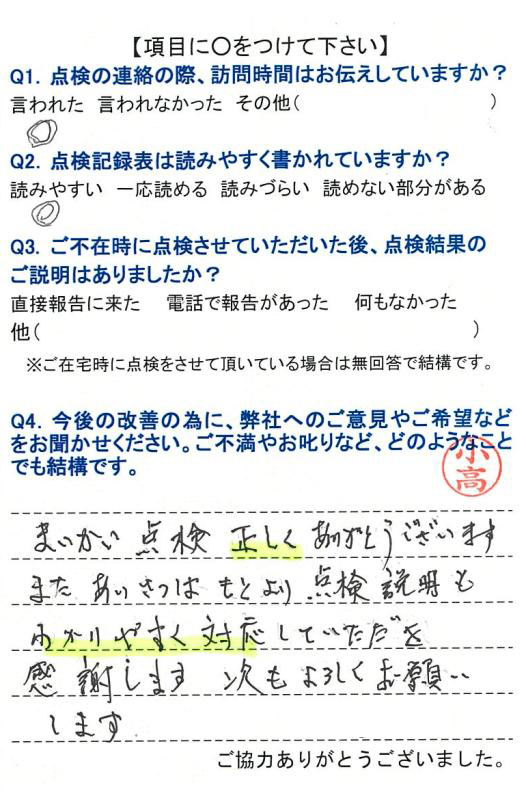 【項目に〇をつけて下さい】
Q1. 点検の連絡の際、訪問時間はお伝えしていますか？
言われた 言われなかった その他( )
Q2. 点検記録表は読みやすく書かれていますか？
読みやすい 一応読める 読みづらい 読めない部分がある
Q3. ご不在時に点検させていただいた後、点検結果の
ご説明はありましたか？
直接報告に来た 電話で報告があった 何もなかった
他( )
※ご在宅時に点検をさせて頂いている場合は無回答で結構です。
Q4. 今後の改善の為に、弊社へのご意見やご希望など
をお聞かせください。ご不満やお叱りなど、どのようなこと
でも結構です。
小高
まいかい 点検 正しく ありがとうございます
また あいさつは もとより 点検 説明も
わかりやすく 対応していただき
感謝します 次もよろしくお願い
します
ご協力ありがとうございました。